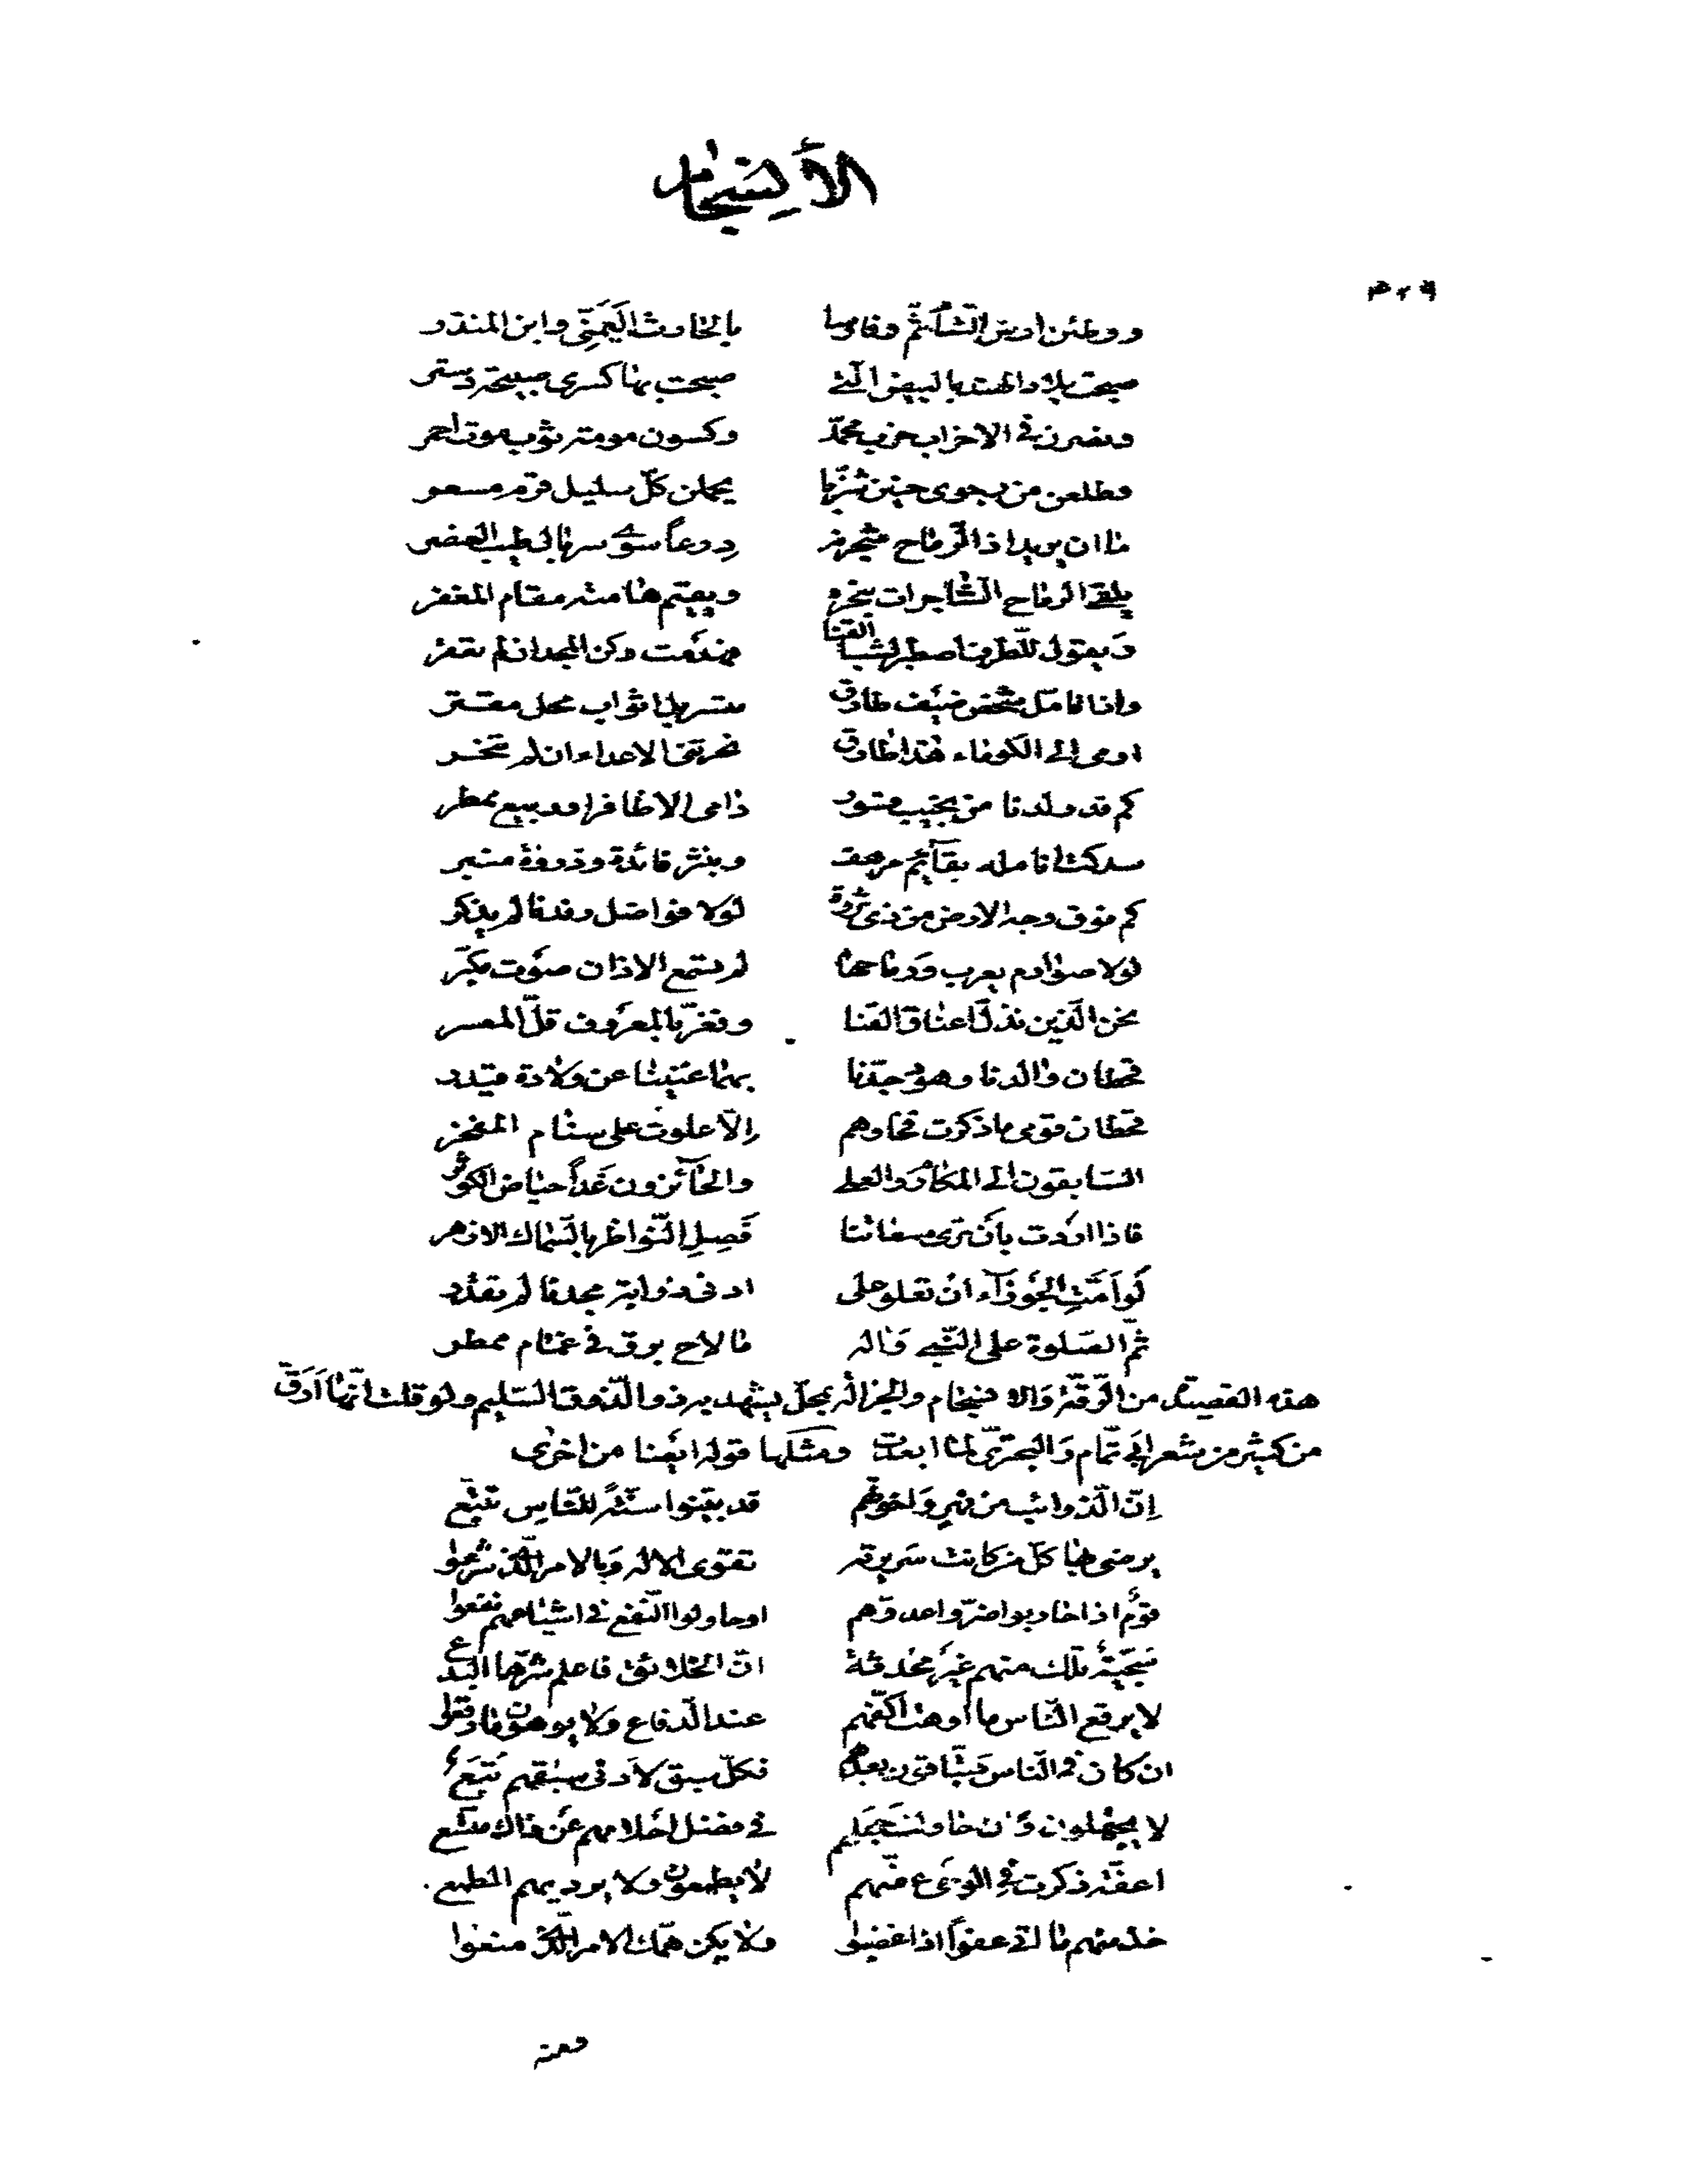 الأنسجام
ووطئن ارض الشأم ثم وفارسا بالحارث اليمني وابن المنذر
صبحت بلاد الهند بالبيض التي صبحت بها كسرى صبيحة دستر
ونصرن في الاحزاب حزب محمد وكسون مؤتة ثوب موت احمر
وطلعن من رجوى حنين شزبا يحملن كل سليل قرم مسعر
ما ان يريد اذا الرماح شجرنه درعاً سوى سربال طيب العنصر
يلقى الرماح الشاجرات بنحره ويقيم هامته مقام المغفر
ويقول للطرف اصطبر لشبا القنا فهدمت ركن المجد ان لم تعقر
واذا تأمل شخص ضيف طارق متسربل اثواب محل مقتر
اومى الى الكوماء هذا طارق نحرتني الاعداء ان لم تنحر
كم قد ولدنا من نجيب قسور دامي الاظافر او ربيع ممطر
سدكت انامله بقآئم مرهف وبنثر فائدة وذروة منبر
كم فوق وجه الارض من ذي ثروة لولا فواضل رفدنا لم يذكر
لولا صوارم يعرب ورماحها لم تسمع الاذان صوت مكبر
نحن الذين نذل اعناق القنا ونعز بالمعروف قل المعسر
قحطان والدنا وهود جدنا بهما غنينا عن ولادة قيدر
قحطان قومي ما ذكرت فخارهم إلا علوت على سنام المفخر
السابقون الى المكارم والعلى والحآئزون غداً حياض الكوثر
فاذا اردت بأن ترى مسعاتنا فصل النواظر بالسماك الازهر
لو امت الجوزآء ان تعلو على ادنى ذوابة مجدنا لم تقدر
ثم الصلوة على النبي وآله ما لاح برق في غمام ممطر
هذه القصيدة من الرقة والانسجام والجزالة بمحل يشهد به ذو الذوق السليم ولو قلت انها ادق
من كثير من شعر ابي تمام والبحتري لما ابعدت ومثلها قوله ايضا من اخرى
إن الذوائب من فهر واخوتهم قد بينوا سنة للناس تتبع
يرضى بها كل من كانت سريرته تقوى الاله وبالامر الذي شرعوا
قوم اذا حاربوا ضروا عدوهم او حاولوا النفع في اشياعهم نفعوا
سجية تلك منهم غير محدثة ان الخلائق فاعلم شرها البدع
لا يرقع الناس ما اوهت اكفهم عند الدفاع ولا يوهون ما رقعوا
ان كان في الناس سباقون بعدهم فكل سبق لادنى سبقهم تبع
لا يجهلون وان حاولت جهلهم في فضل احلامهم عن ذاك متسع
اعفة ذكرت في الوحي عفتهم لا يطمعون ولا يرديهم الطمع
خذ منهم ما اتى عفواً اذا غضبوا ولا يكن همك الامر الذي منعوا